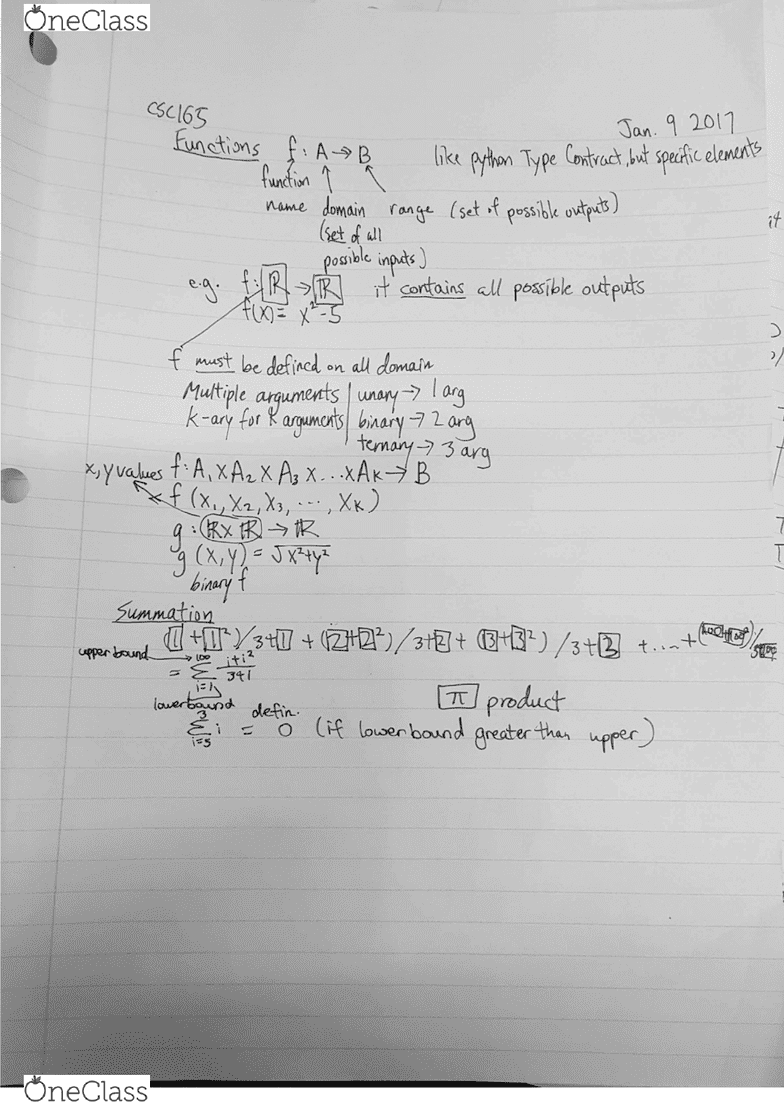 OneClass
CSC165
Jan. 9 2017
Functions f : A → B like python Type Contract, but specific elements
function
name domain range (set of possible outputs)
(set of all
possible inputs)
it
e.g. f: ℝ → ℝ it contains all possible outputs
f(x) = x²-5
f must be defined on all domain
Multiple arguments | unary → 1 arg
K-ary for K arguments | binary → 2 arg
ternary → 3 arg
x, y values f: A₁ x A₂ x A₃ x ... x Aₖ → B
f (x₁, x₂, x₃, ..., xₖ)
g : ℝ x ℝ → ℝ
g (x,y) = √x²+y²
binary f
Summation
(1 + 1²)/3+1 + (2+2²)/3+2 + (3+3²)/3+3 + .... +
upper bound
= 100 Σ i=1 i+i²/3+i
lowerbound
π product
3 Σ i=5 i defin. = 0 (if lowerbound greater than upper)
OneClass